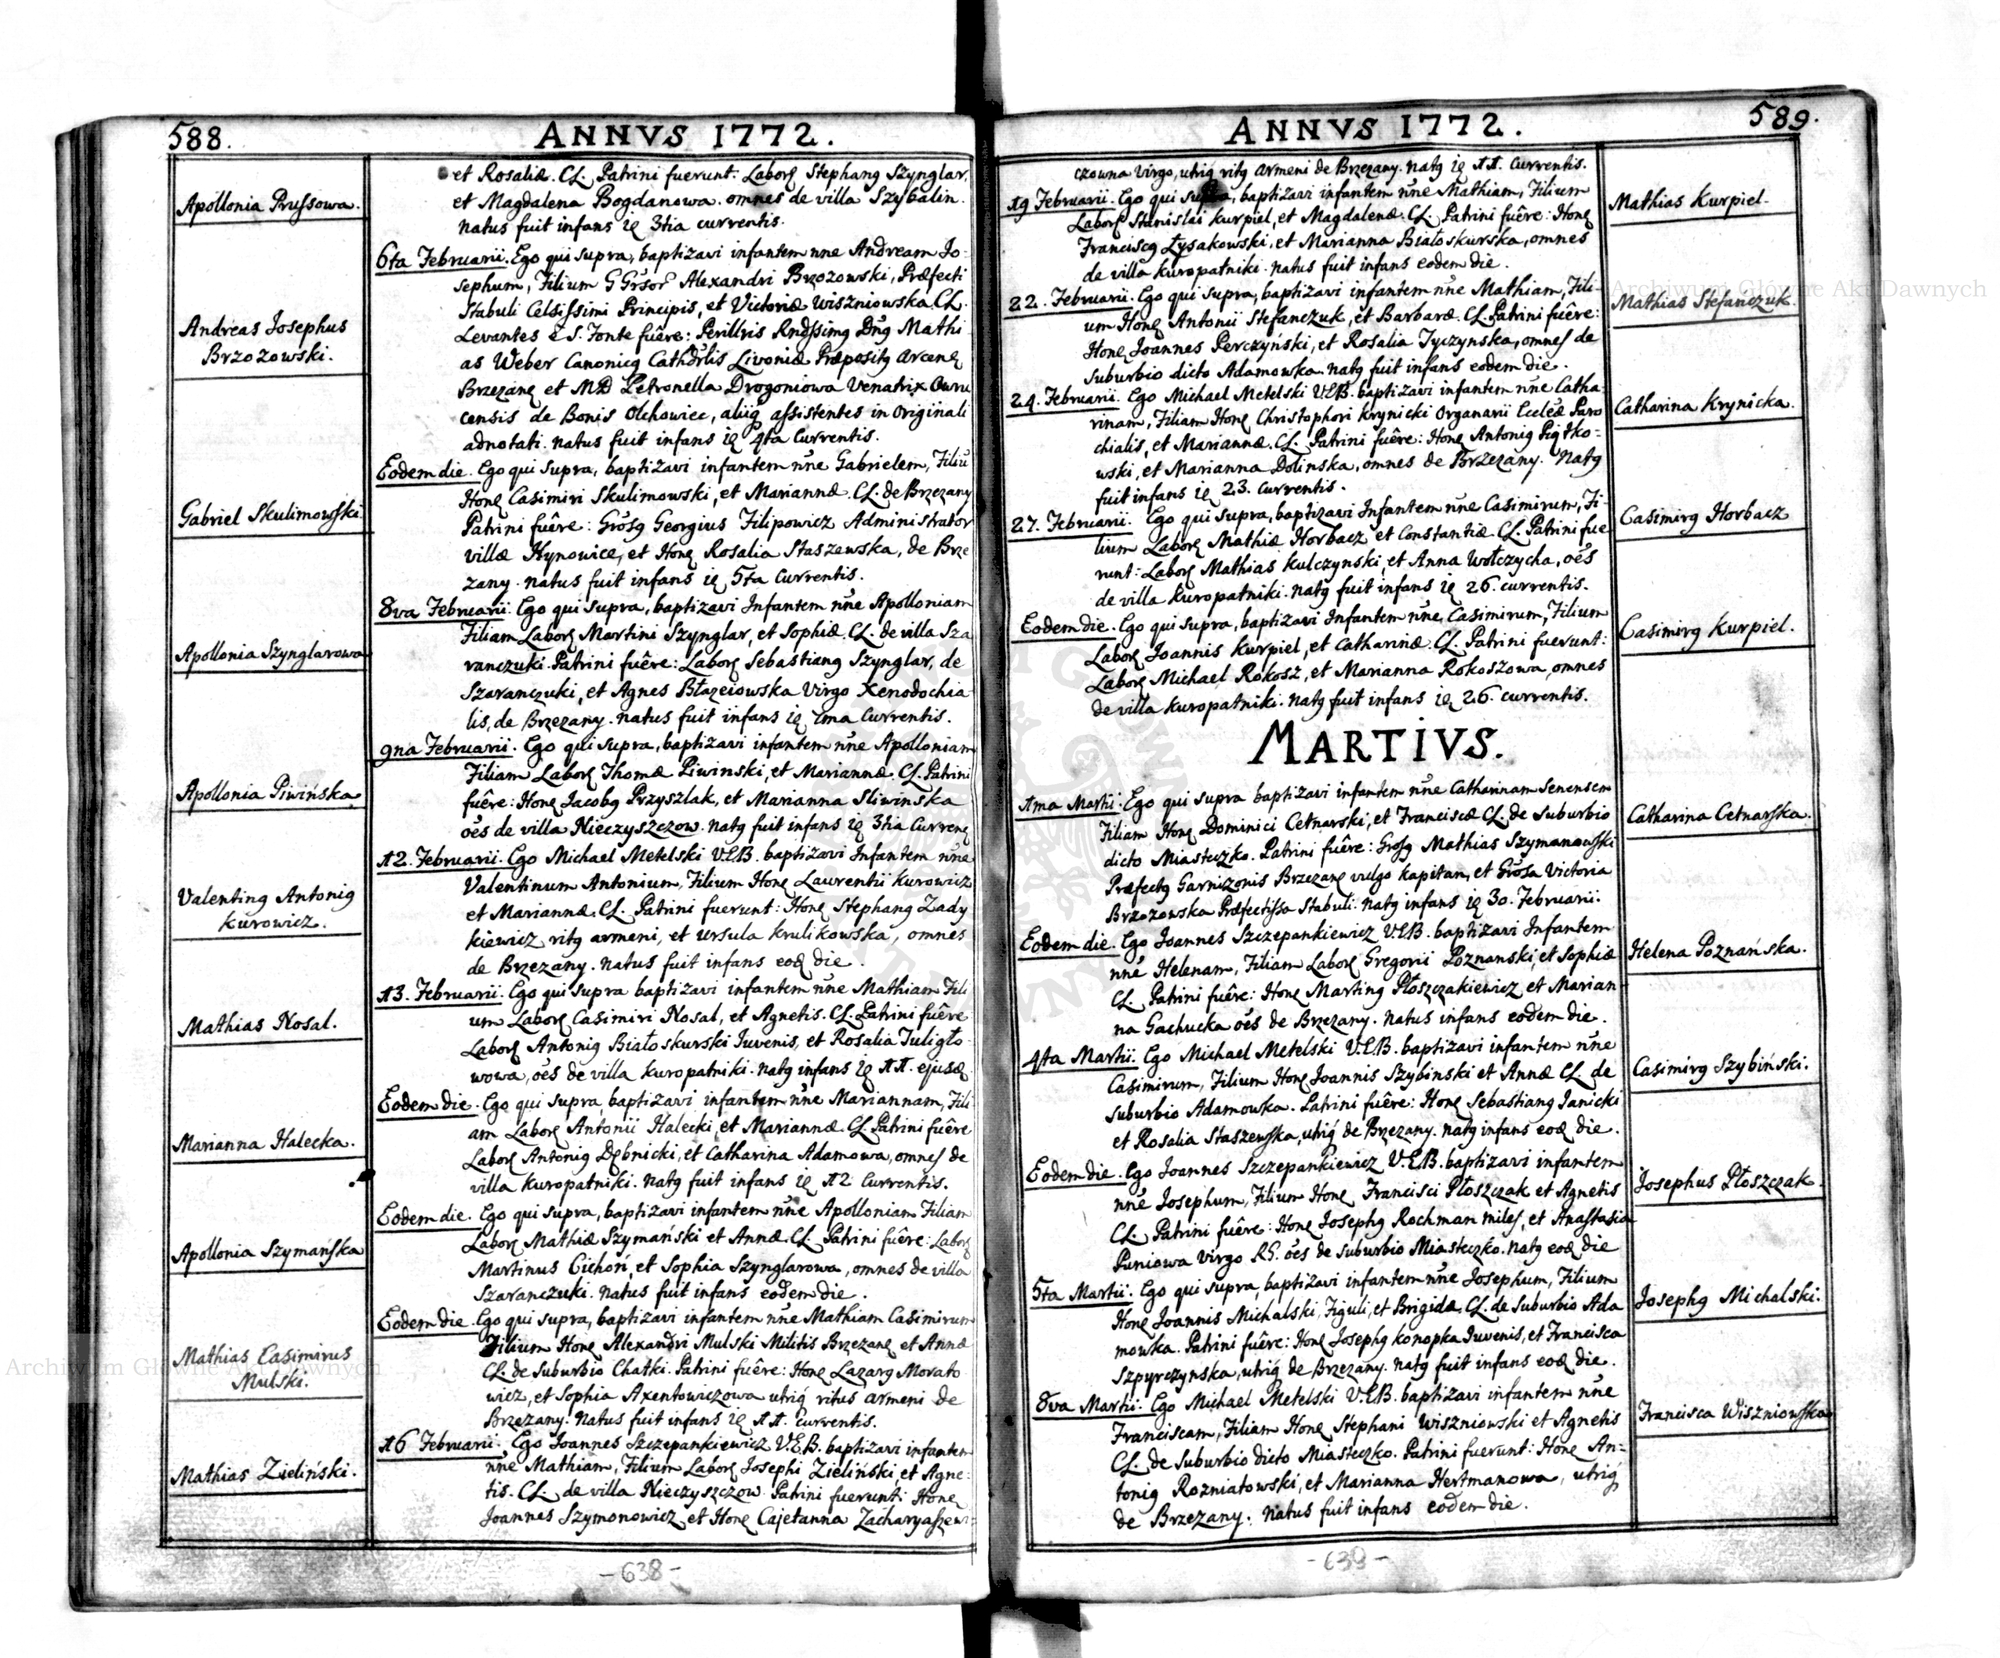 588.
ANNVS 1772.
Apollonia Prussowa.
Andreas Josephus
Brzozowski.
Gabriel Skulimowski
Apollonia Szynglarowa
Apollonia Piwińska
Valentinq Antoniq
Kurowicz.
Mathias Nosal.
Marianna Halecka.
Apollonia Szymańska
Mathias Casimirus
Mulski.
Mathias Zieliński.
et Rosaliæ. CL. Patrini fuerunt: Labors Stephanq Szynglar,
et Magdalena Bogdanowa. omnes de villa Szybalin.
natus fuit infans ię 3tia currentis.
6ta Februarii. Ego qui supra, baptizavi infantem nne Andream Jo-
sephum, Filium G Grsor Alexandri Brzozowski, Præfecti
Stabuli Celsissimi Principis, et Victoriæ Wiszniowska CL.
Levantes è S. Fonte fuêre: Perillris Rndssimq Dnq Mathi-
as Weber Canonicq Cathdrlis Livoniæ Præpositq Arcenę
Brzezanę et MD Petronella Drogoniowa Venatrix Owru
censis de Bonis Olchowiec, aliiq assistentes in Originali
adnotati. natus fuit infans ię 4ta Currentis.
Eodem die. Ego qui supra, baptizavi infantem nne Gabrielem, Filiu
Honę Casimiri Skulimowski, et Mariannæ. CL. de Brzezany
Patrini fuêre: Grosq Georgius Filipowicz Administrator
villæ Hynowice, et Honę Rosalia Staszewska, de Brze
zany. natus fuit infans ię 5ta Currentis.
8va Februarii. Ego qui supra, baptizavi Infantem nne Apolloniam
Filiam Labors Martini Szynglar, et Sophiæ. CL. de villa Sza
ranczuki. Patrini fuêre: Labors Sebastianq Szynglar, de
Szaranczuki, et Agnes Błazeiowska Virgo Xenodochia
lis, de Brzezany. natus fuit infans ię 7ma Currentis.
9na Februarii. Ego qui supra, baptizavi infantem nne Apolloniam
Filiam Labors Thomæ Piwinski, et Mariannæ. CL. Patrini
fuêre: Honę Jacobq Przyszlak, et Marianna Sliwinska
oes de villa Nieczyszczow. natq fuit infans ię 3tia Currenę
12. Februarii. Ego Michael Metelski V.E.B. baptizavi Infantem nne
Valentinum Antonium, Filium Honę Laurentii Kurowicz
et Mariannæ. CL. Patrini fuerunt: Honę Stephanq Zady
kiewicz ritq armeni, et Ursula Krulikowska, omnes
de Brzezany. natus fuit infans eoę die.
13. Februarii. Ego qui supra baptizavi infantem nne Mathiam Fili
um Labors Casimiri Nosal, et Agnetis. CL. Patrini fuêre
Labors Antoniq Białoskurski Iuvenis, et Rosalia Juligło-
wowa, oes de villa Kuropatniki. natq infans ię 11. ejusę
Eodem die. Ego qui supra, baptizavi infantem nne Mariannam, Fili
am Labors Antonii Halecki, et Mariannæ. CL. Patrini fuêre
Labors Antoniq Dębnicki, et Catharina Adamowa, omnes de
villa Kuropatniki. natq fuit infans ię 12 Currentis.
Eodem die. Ego qui supra, baptizavi infantem nne Apolloniam Filiam
Labors Mathiæ Szymański et Annæ. CL. Patrini fuêre: Labors
Martinus Cichoń, et Sophia Szynglarowa, omnes de villa
Szaranczuki. natus fuit infans eodem die.
Eodem die. Ego qui supra, baptizavi infantem nne Mathiam Casimirum
Filium Honę Alexandri Mulski Militis Brzezanę et Annæ
CL. de Suburbio Chatki. Patrini fuêre: Honę Lazarq Morato
wicz, et Sophia Axentowiczowa utriq ritus armeni de
Brzezany. natus fuit infans ię 11. Currentis.
16 Februarii. Ego Joannes Szczepankiewicz V.E.B. baptizavi infantem
nne Mathiam, Filium Labors Josephi Zieliński et Agne-
tis. CL. de villa Nieczyszczow. Patrini fuerunt: Honę
Joannes Szymonowicz et Honę Cajetanna Zacharyaszew-
-638-
ANNVS 1772.
589.
czowna Virgo, utriq ritq Armeni de Brzezany. natq ię 11. Currentis.
19 Februarii. Ego qui supra, baptizavi infantem nne Mathiam, Filium
Labors Stanislai Kurpiel, et Magdalenæ. CL. Patrini fuêre: Honę
Franciscq Łysakowski, et Marianna Białoskurska, omnes
de villa Kuropatniki. natus fuit infans eodem die.
22. Februarii. Ego qui supra, baptizavi infantem nne Mathiam, Fili-
um Honę Antonii Stefanczuk, et Barbaræ. CL. Patrini fuêre:
Honę Joannes Perczyński, et Rosalia Tyczynska, omnes de
Suburbio dicto Adamowka. natq fuit infans eodem die.
24. Februarii. Ego Michael Metelski V.E.B. baptizavi infantem nne Catha-
rinam, Filiam Honę Christophori Krynicki Organarii Eccleæ Paro
chialis, et Mariannæ. CL. Patrini fuêre: Honę Antoniq Piątko-
wski, et Marianna Dolinska, omnes de Brzezany. Natq
fuit infans ię 23. Currentis.
27. Februarii. Ego qui supra, baptizavi Infantem nne Casimirum, Fi-
lium Labors Mathiæ Horbacz et Constantiæ. CL. Patrini fue
runt: Labors Mathias Kulczynski, et Anna Wołczycha, oes
de villa Kuropatniki. natq fuit infans ię 26. currentis.
Eodem die. Ego qui supra, baptizavi Infantem nne, Casimirum, Filium
Labors Joannis Kurpiel, et Catharinæ. CL. Patrini fuerunt:
Labors Michael Rokosz, et Marianna Rokoszowa, omnes
de villa Kuropatniki. natq fuit infans ię 26. currentis.
MARTIVS.
1ma Martii. Ego qui supra baptizavi infantem nne Catharinam Senensem
Filiam Honę Dominici Cetnarski, et Franciscæ CL. de Suburbio
dicto Miasteczko. Patrini fuêre: Grosq Mathias Szymanowski
Præfectq Garnizonis Brzezanę vulgo Kapitan, et Grosa Victoria
Brzozowska Præfectissa Stabuli. natq infans ię 30. Februarii.
Eodem die. Ego Joannes Szczepankiewicz V.E.B. baptizavi Infantem
nne Helenam, Filiam Labors Gregorii Poznanski, et Sophiæ
CL. Patrini fuêre: Honę Martinq Płoszczakiewicz et Marian-
na Gachucka oes de Brzezany. natus infans eodem die.
4ta Martii. Ego Michael Metelski V.E.B. baptizavi infantem nne
Casimirum, Filium Honę Joannis Szybinski et Annæ CL. de
Suburbio Adamowka. Patrini fuêre: Honę Sebastianq Janicki
et Rosalia Staszewska, utriq de Brzezany. natq infans eoę die.
Eodem die. Ego Joannes Szczepankiewicz V.E.B. baptizavi infantem
nne Josephum, Filium Honę Francisci Płoszczak et Agnetis
CL. Patrini fuêre: Honę Josephq Rochman miles, et Anastasia
Puniowa Virgo R.G. oes de Suburbio Miasteczko. natq eoę die
5ta Martii. Ego qui supra, baptizavi infantem nne Josephum, Filium
Honę Joannis Michalski, Figuli, et Brigidæ. CL. de Suburbio Ada
mowka. Patrini fuêre: Honę Josephq Konopka Iuvenis, et Francisca
Szpyrczynska, utriq de Brzezany. natq fuit infans eoę die.
8va Martii. Ego Michael Metelski V.E.B. baptizavi infantem nne
Franciscam, Filiam Honę Stephani Wiszniowski et Agnetis
CL. de Suburbio dicto Miasteczko. Patrini fuerunt: Honę An-
toniq Rozniatowski, et Marianna Hertmanowa, utriq
de Brzezany. natus fuit infans eodem die.
Mathias Kurpiel.
Mathias Stefanczuk.
Catharina Krynicka.
Casimirq Horbacz
Casimirq Kurpiel.
Catharina Cetnarska.
Helena Poznańska.
Casimirq Szybiński.
Josephus Płoszczak.
Josephq Michalski.
Francisca Wiszniowska
-639-
Archiwum Główne Akt Dawnych
Archiwum Główne Akt Dawnych